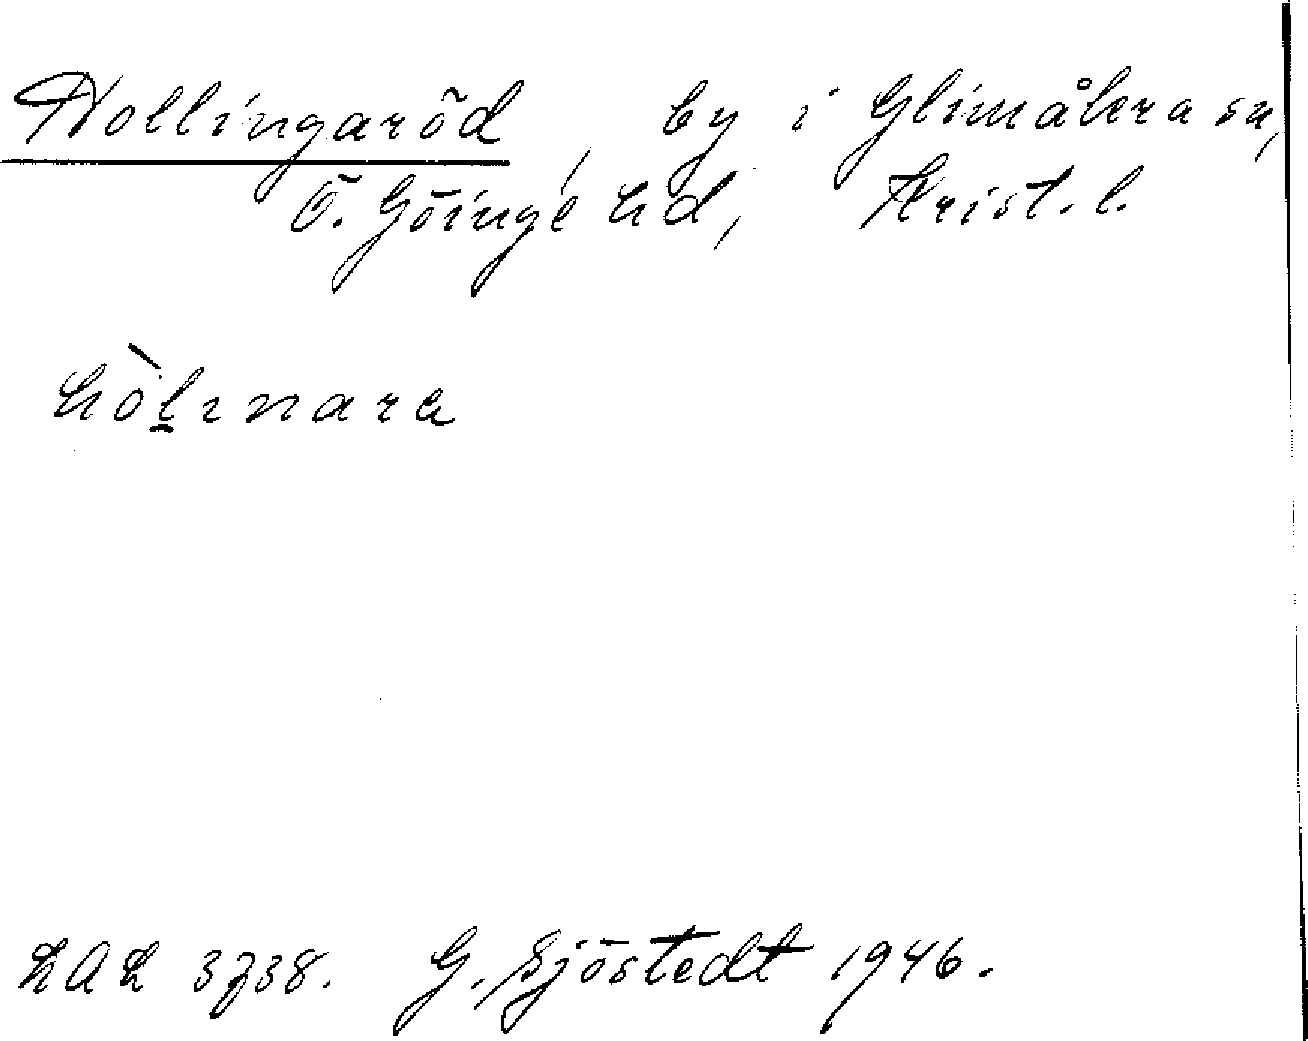 Hollingaröd, by i Glimåkra sn,
Ö. Göinge hd, Krist. l.
hòḷınara
LAL 3738. G. Sjöstedt 1946.